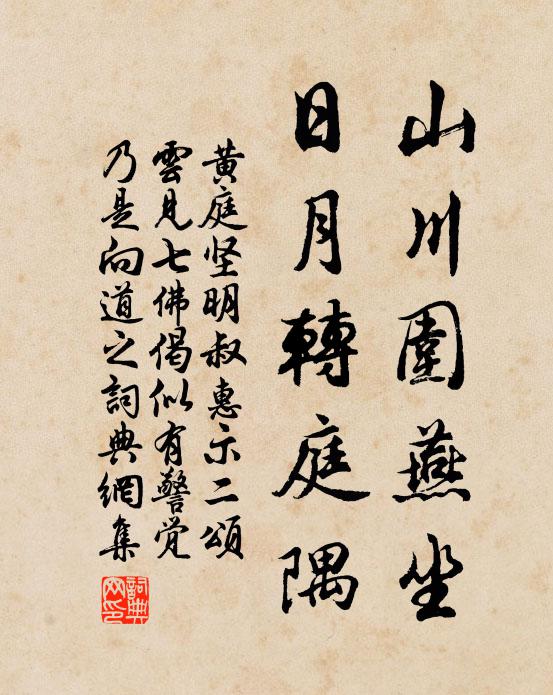 山川圍燕坐
日月轉庭隅
黄庭坚明叔惠示二頌
雲見七佛偈似有警觉
乃是向道之詞典網集
詞典網印